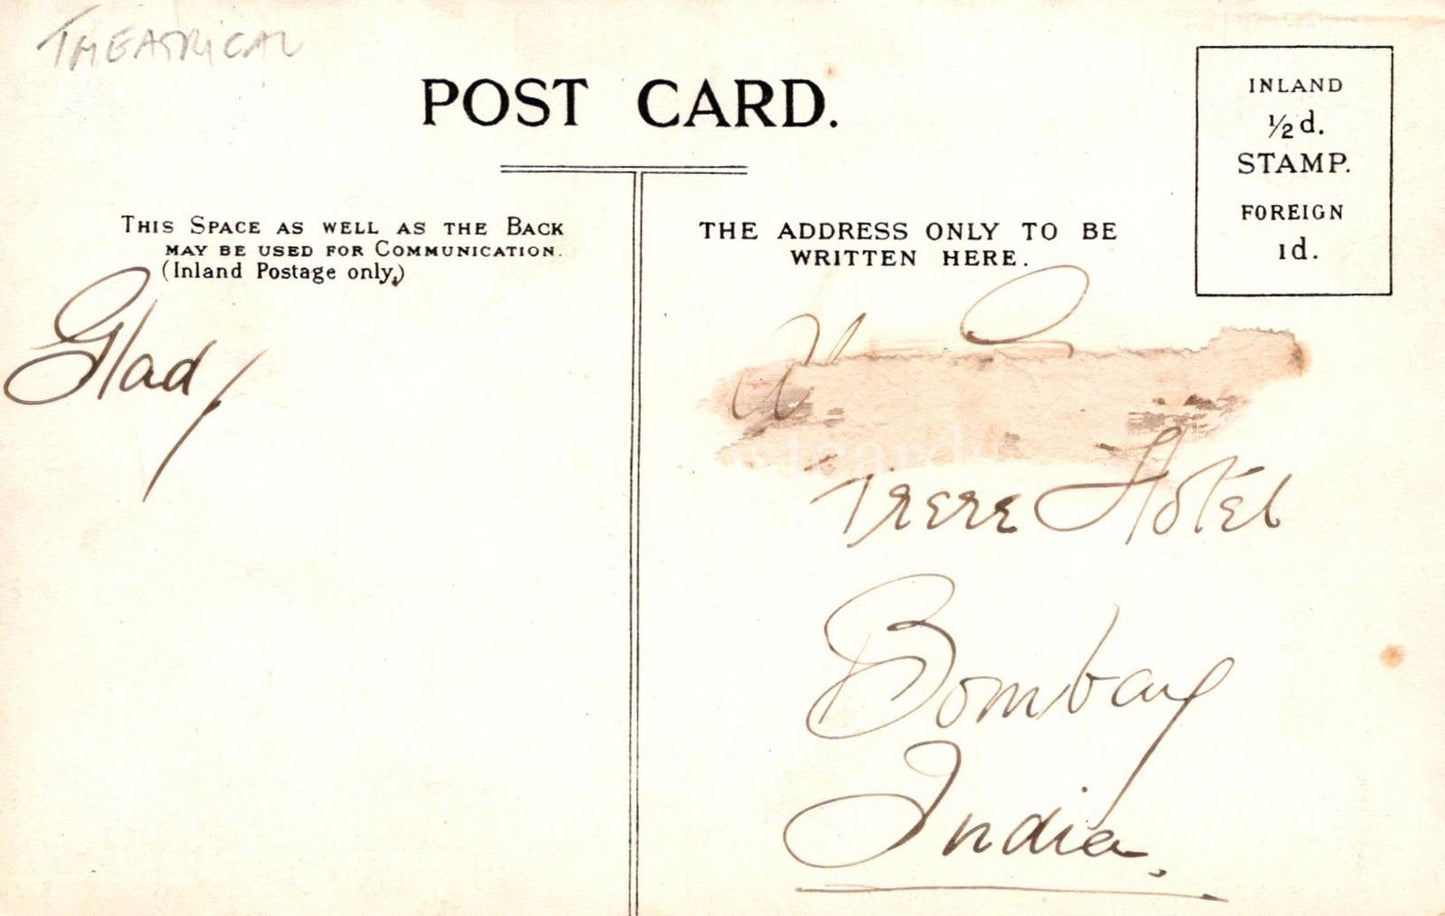 THEATRICAL
POST CARD.
INLAND
½d.
STAMP.
FOREIGN
1d.
THIS SPACE AS WELL AS THE BACK
MAY BE USED FOR COMMUNICATION.
(Inland Postage only,)
Glad
THE ADDRESS ONLY TO BE
WRITTEN HERE.
Hotel
Bombay
India.